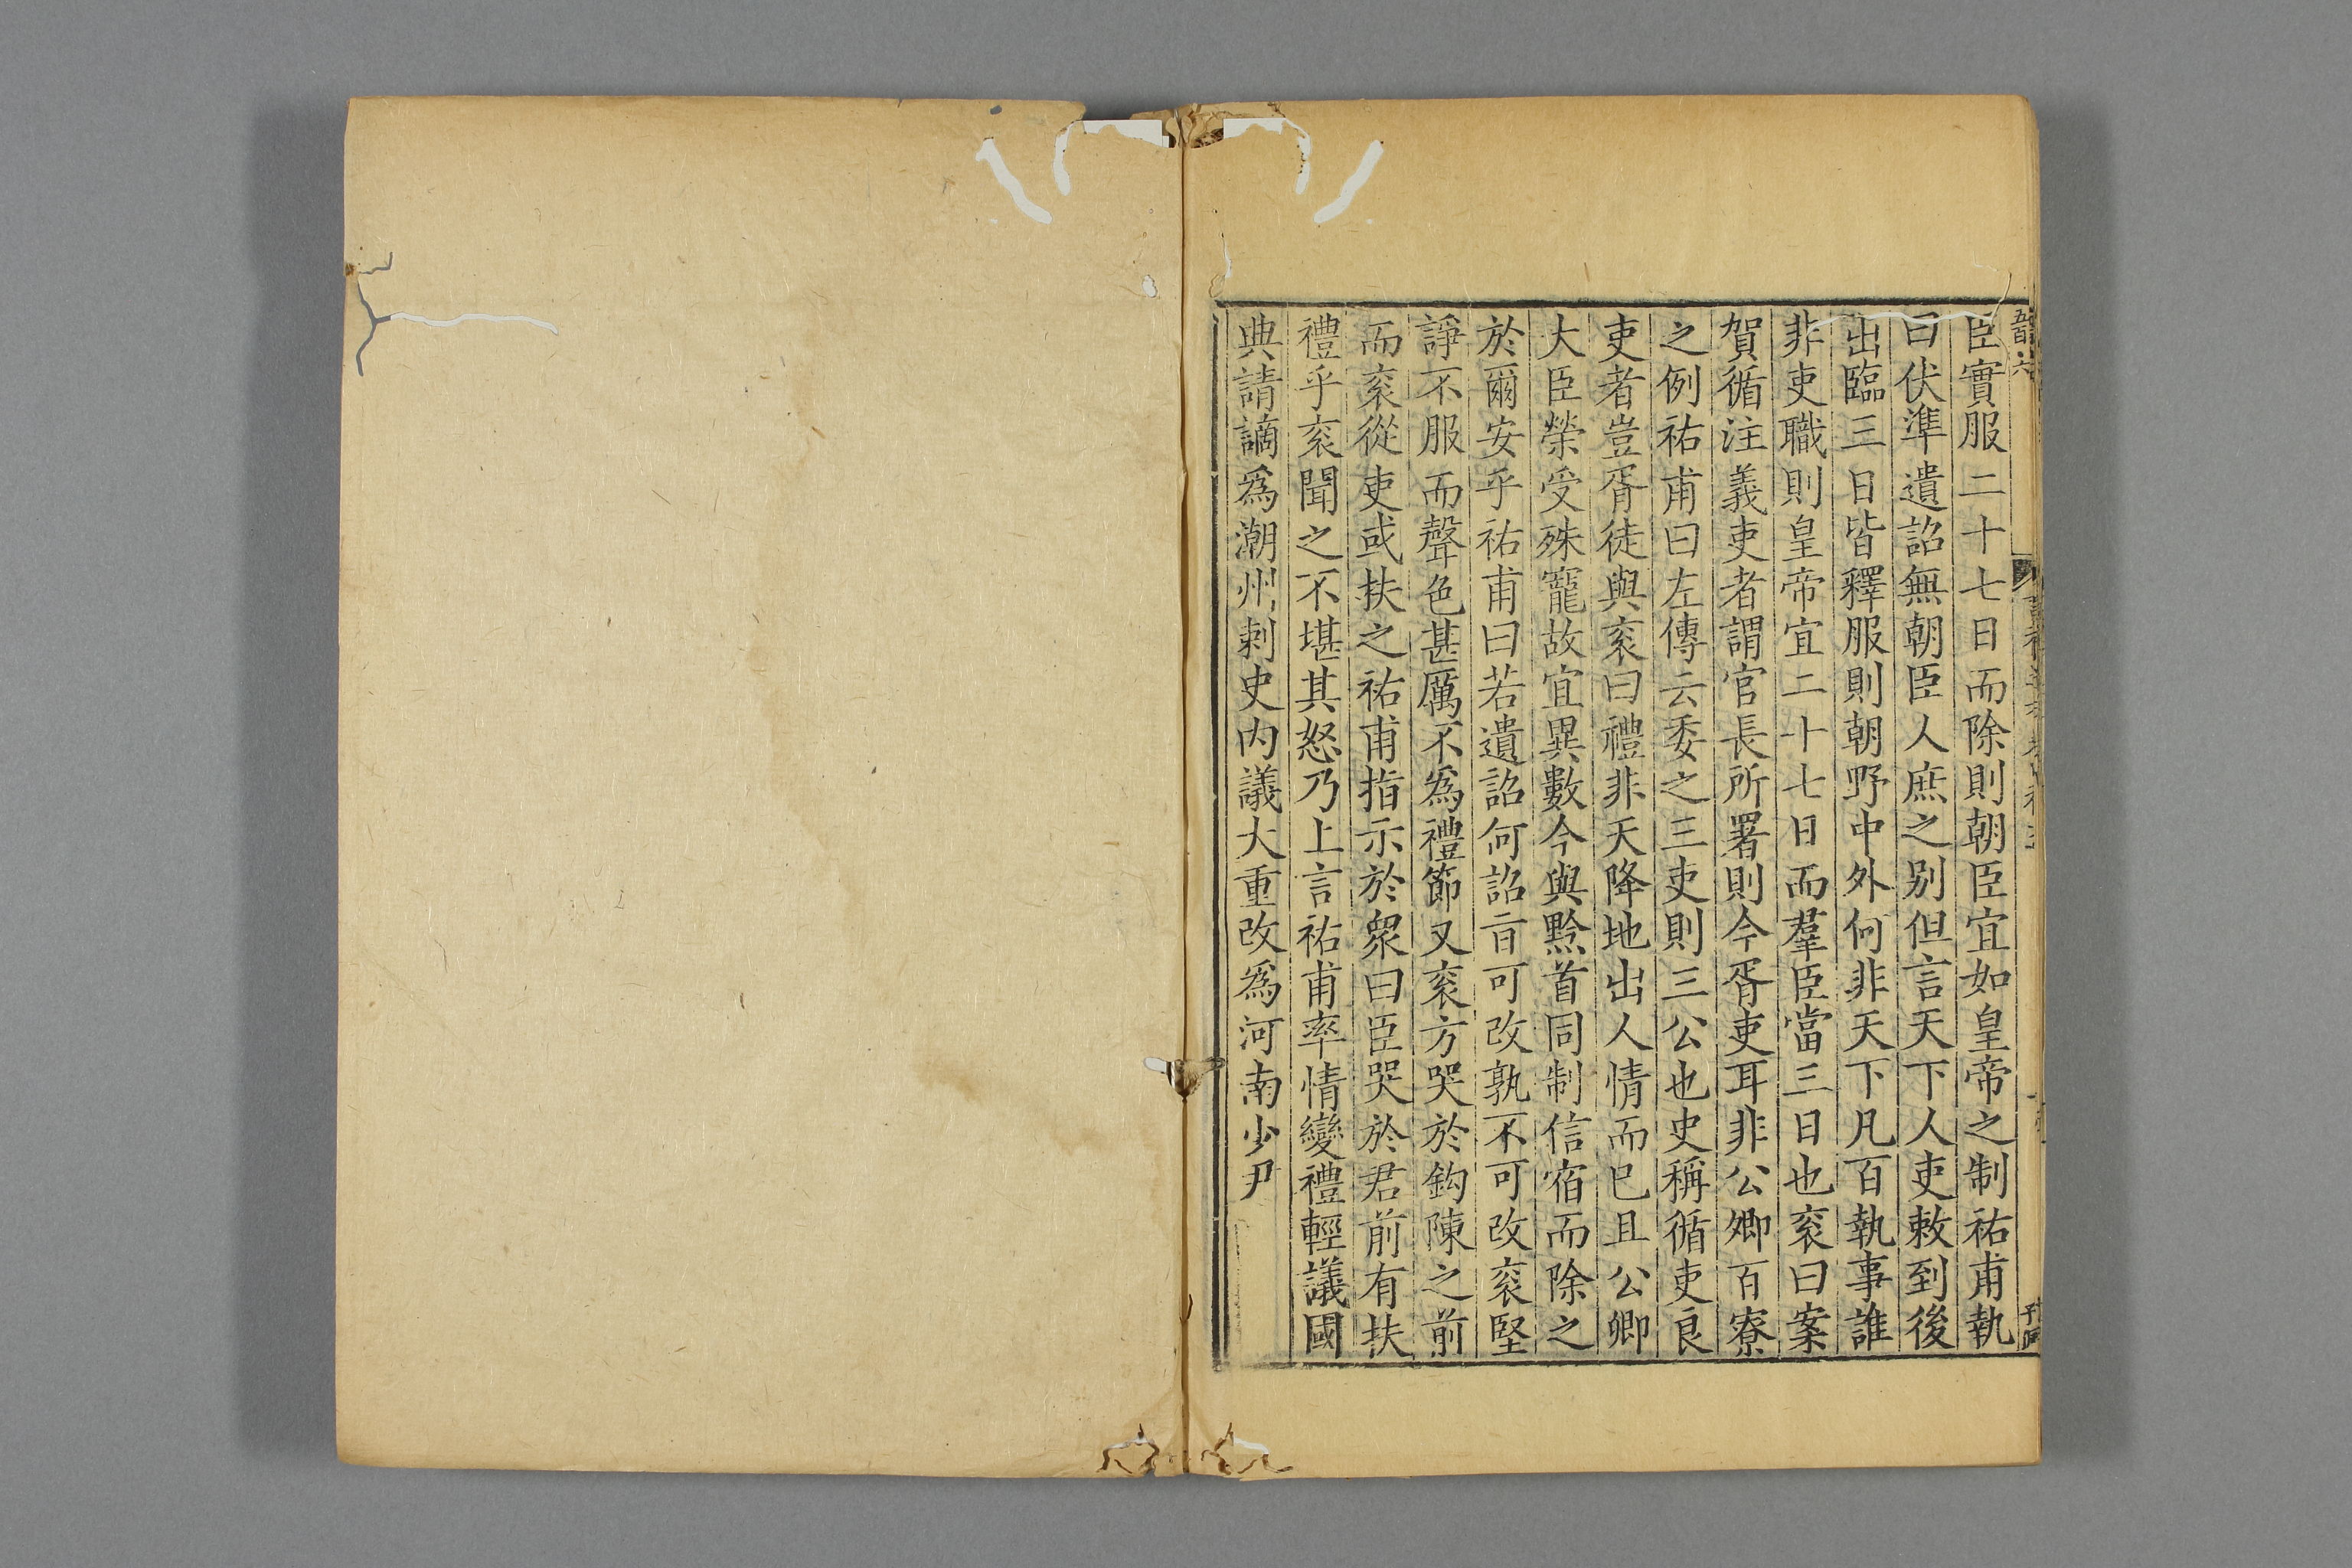 臣實服二十七日而除則朝臣宜如皇帝之制祐甫執
曰伏準遺詔無朝臣人庶之别但言天下人吏敕到後
出臨三日皆釋服則朝野中外何非天下凡百執事誰
非吏職則皇帝宜二十七日而羣臣當三日也衮曰案
賀循注義吏者謂官長所署則今胥吏耳非公卿百寮
之例祐甫曰左傳云委之三吏則三公也史稱循吏良
吏者豈胥徒與衮曰禮非天降地出人情而巳且公卿
大臣榮受殊寵故宜異數今與黔首同制信宿而除之
於爾安乎祐甫曰若遺詔何詔㫖可改孰不可改衮堅
諍不服而聲色甚厲不爲禮節又衮方哭於鈎陳之前
而衮從吏或扶之祐甫指示於衆曰臣哭於君前有扶
禮乎衮聞之不堪其怒乃上言祐甫率情變禮輕議國
典請謫爲潮州刺史内議太重改爲河南少尹